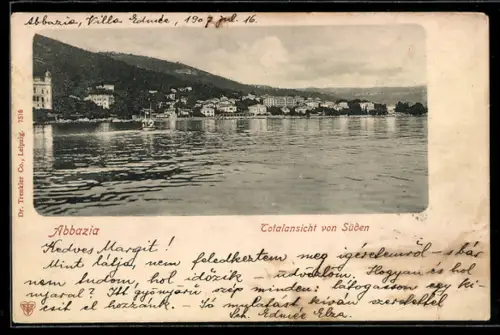 Abbazia, Villa Edmée, 1907 Jul. 16
Dr. Trenkler Co., Leipzig. 7516
Abbazia
Totalansicht von Süden
Kedves Margit!
Mint látja, nem feledkeztem meg igéretemről - s bár
nem tudom, hol időzik - üdvözlöm. Hogyan és hol
nyaral? Itt gyönyörű szép minden: látogasson egy ki-
csit el hozzánk. Jó mulatást kíván szeretettel
Edmée Elza.